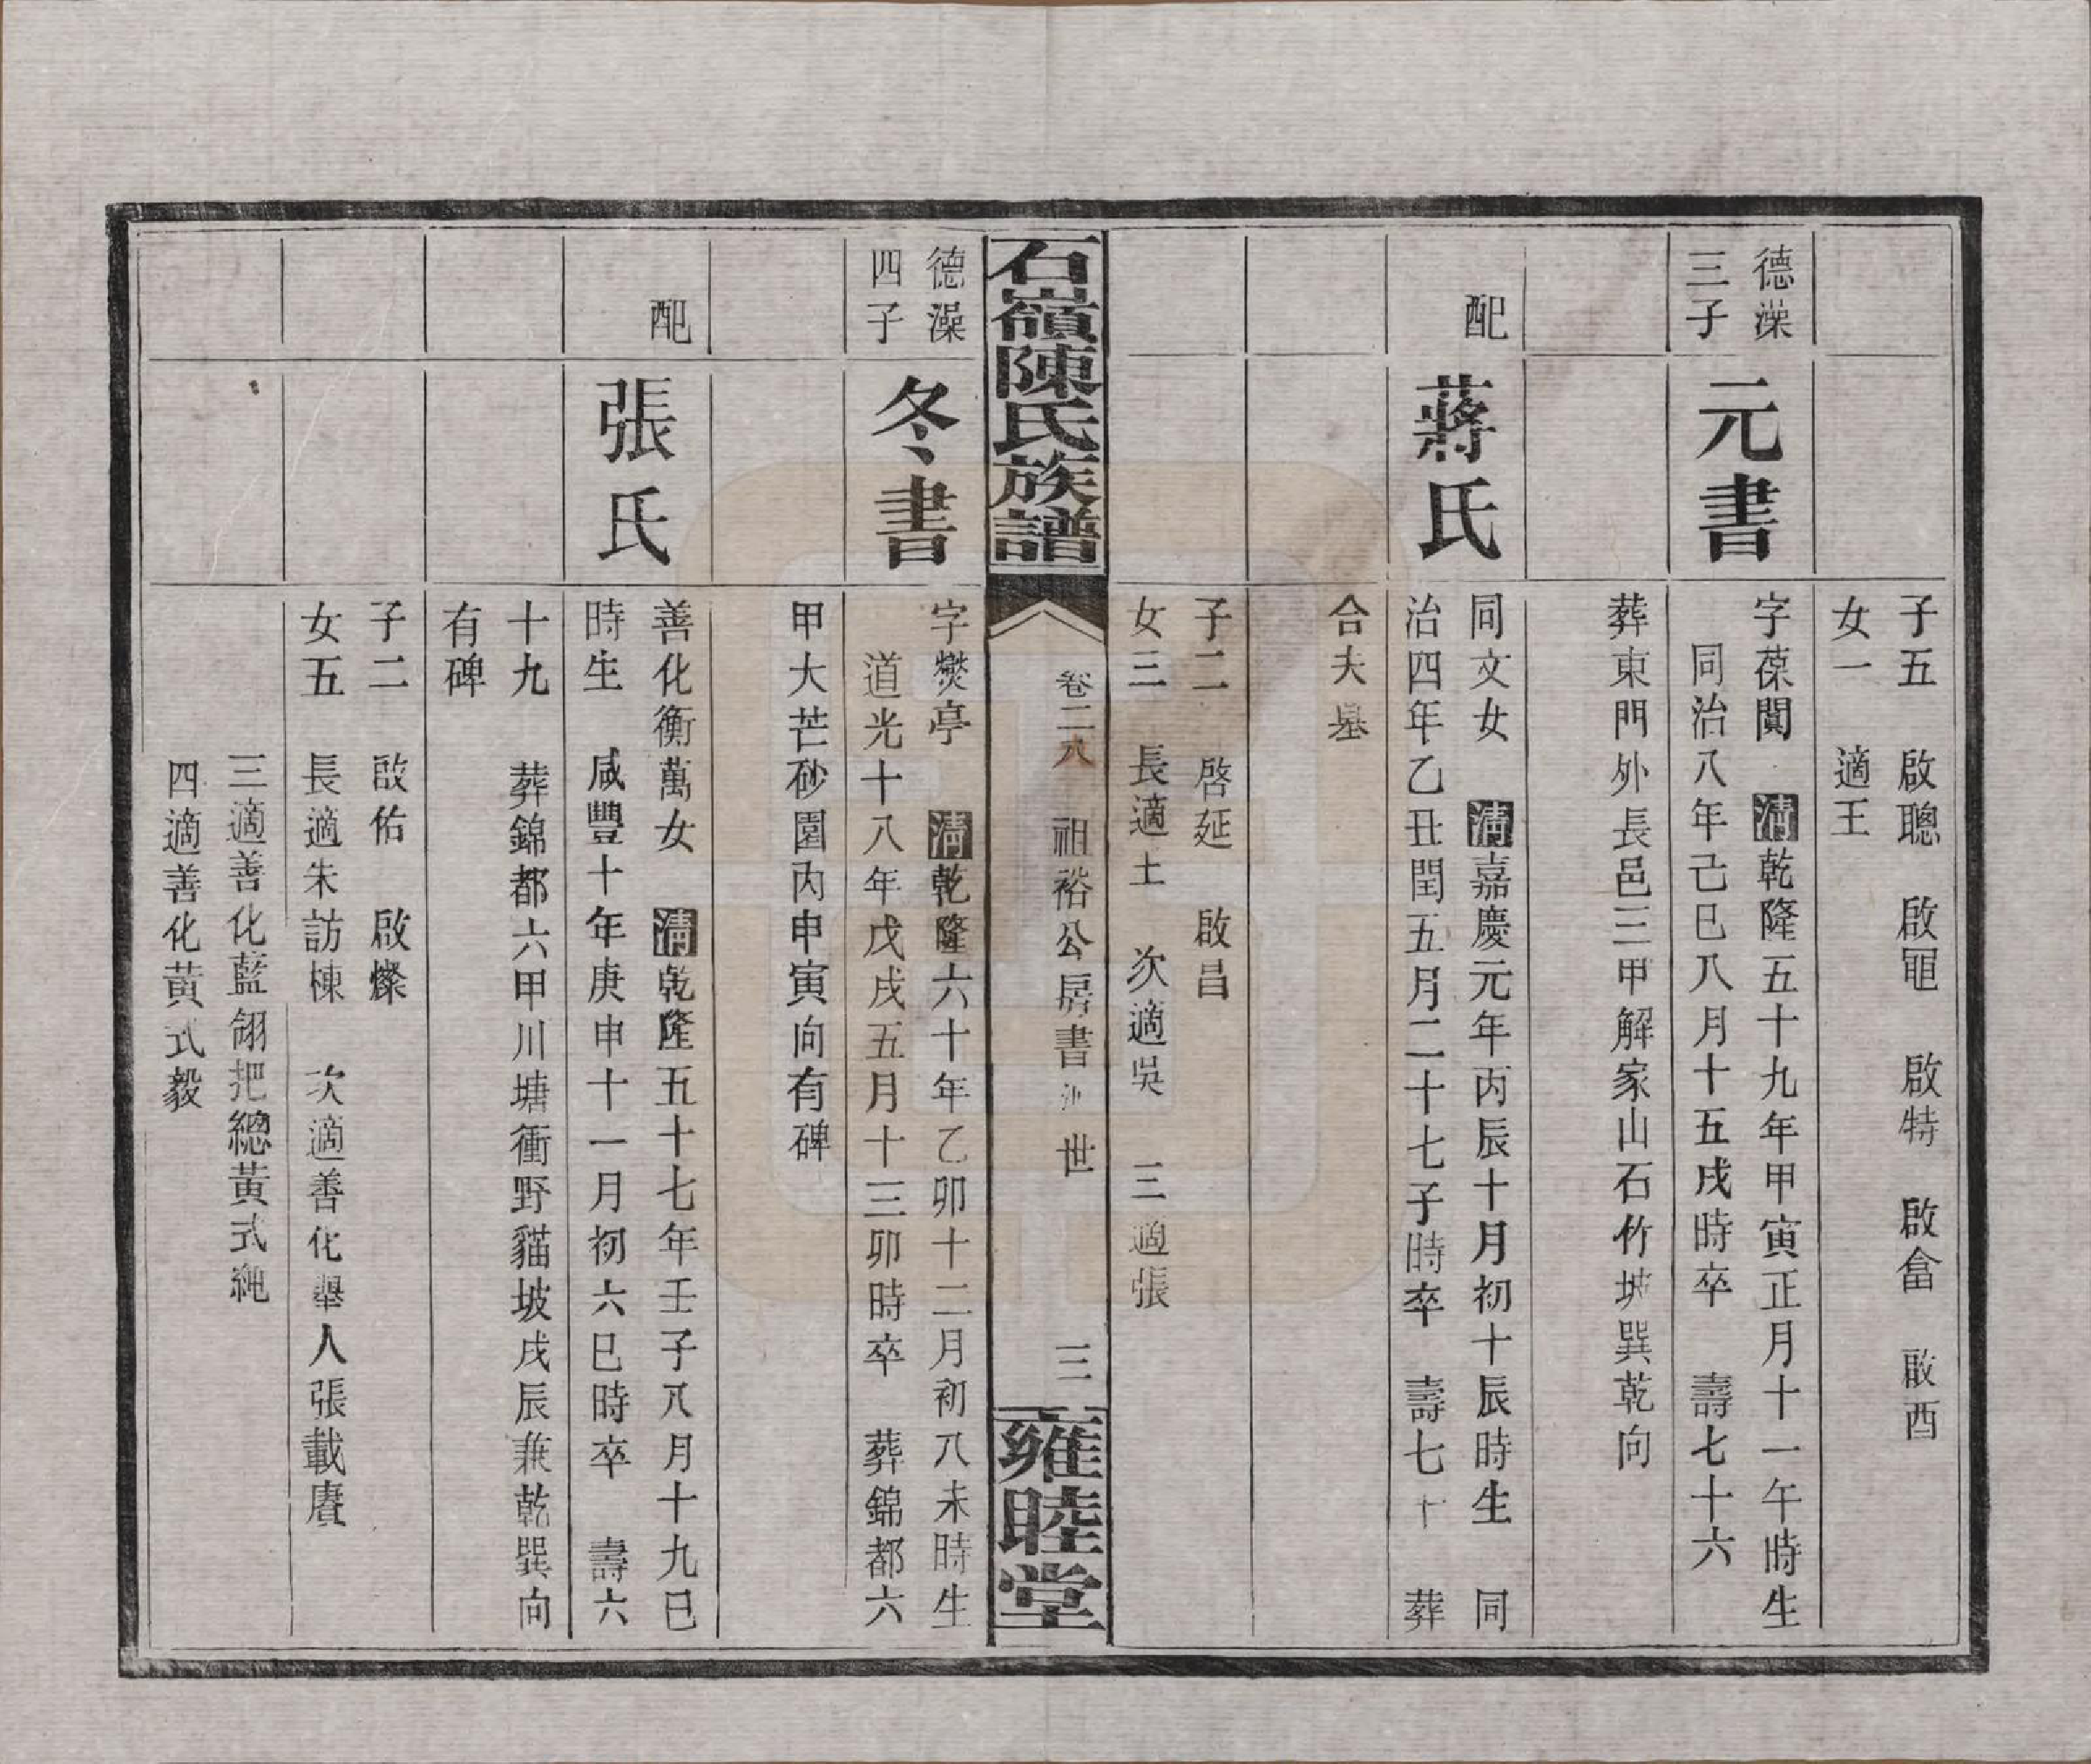 子五 啟聰 啟黽 啟特 啟畲 啟酉
女一 適王
德澡
三子
元書
字葆閬 清乾隆五十九年甲寅正月十一午時生
同治八年己巳八月十五戌時卒 壽七十六
葬東門外長邑三甲解家山石竹坡巽乾向
配
蔣氏
同文女 清嘉慶元年丙辰十月初十辰時生 同
治四年乙丑閏五月二十七子時卒 壽七十 葬
合夫墓
子二 啓延 啟昌
女三 長適王 次適吳 三適張
石嶺陳氏族譜
卷二八 祖裕公房書 世
三
雍睦堂
德澡
四子
冬書
字爕亭 清乾隆六十年乙卯十二月初八未時生
道光十八年戊戌五月十三卯時卒 葬錦都六
甲大芒砂園內申寅向有碑
配
張氏
善化衡萬女 清乾隆五十七年壬子八月十九巳
時生 咸豐十年庚申十一月初六巳時卒 壽六
十九 葬錦都六甲川塘衝野貓坡戌辰兼乾巽向
有碑
子二 啟佑 啟燦
女五 長適朱訪棟 次適善化舉人張載賡
三適善化藍翎把總黃式繩
四適善化黃式毅